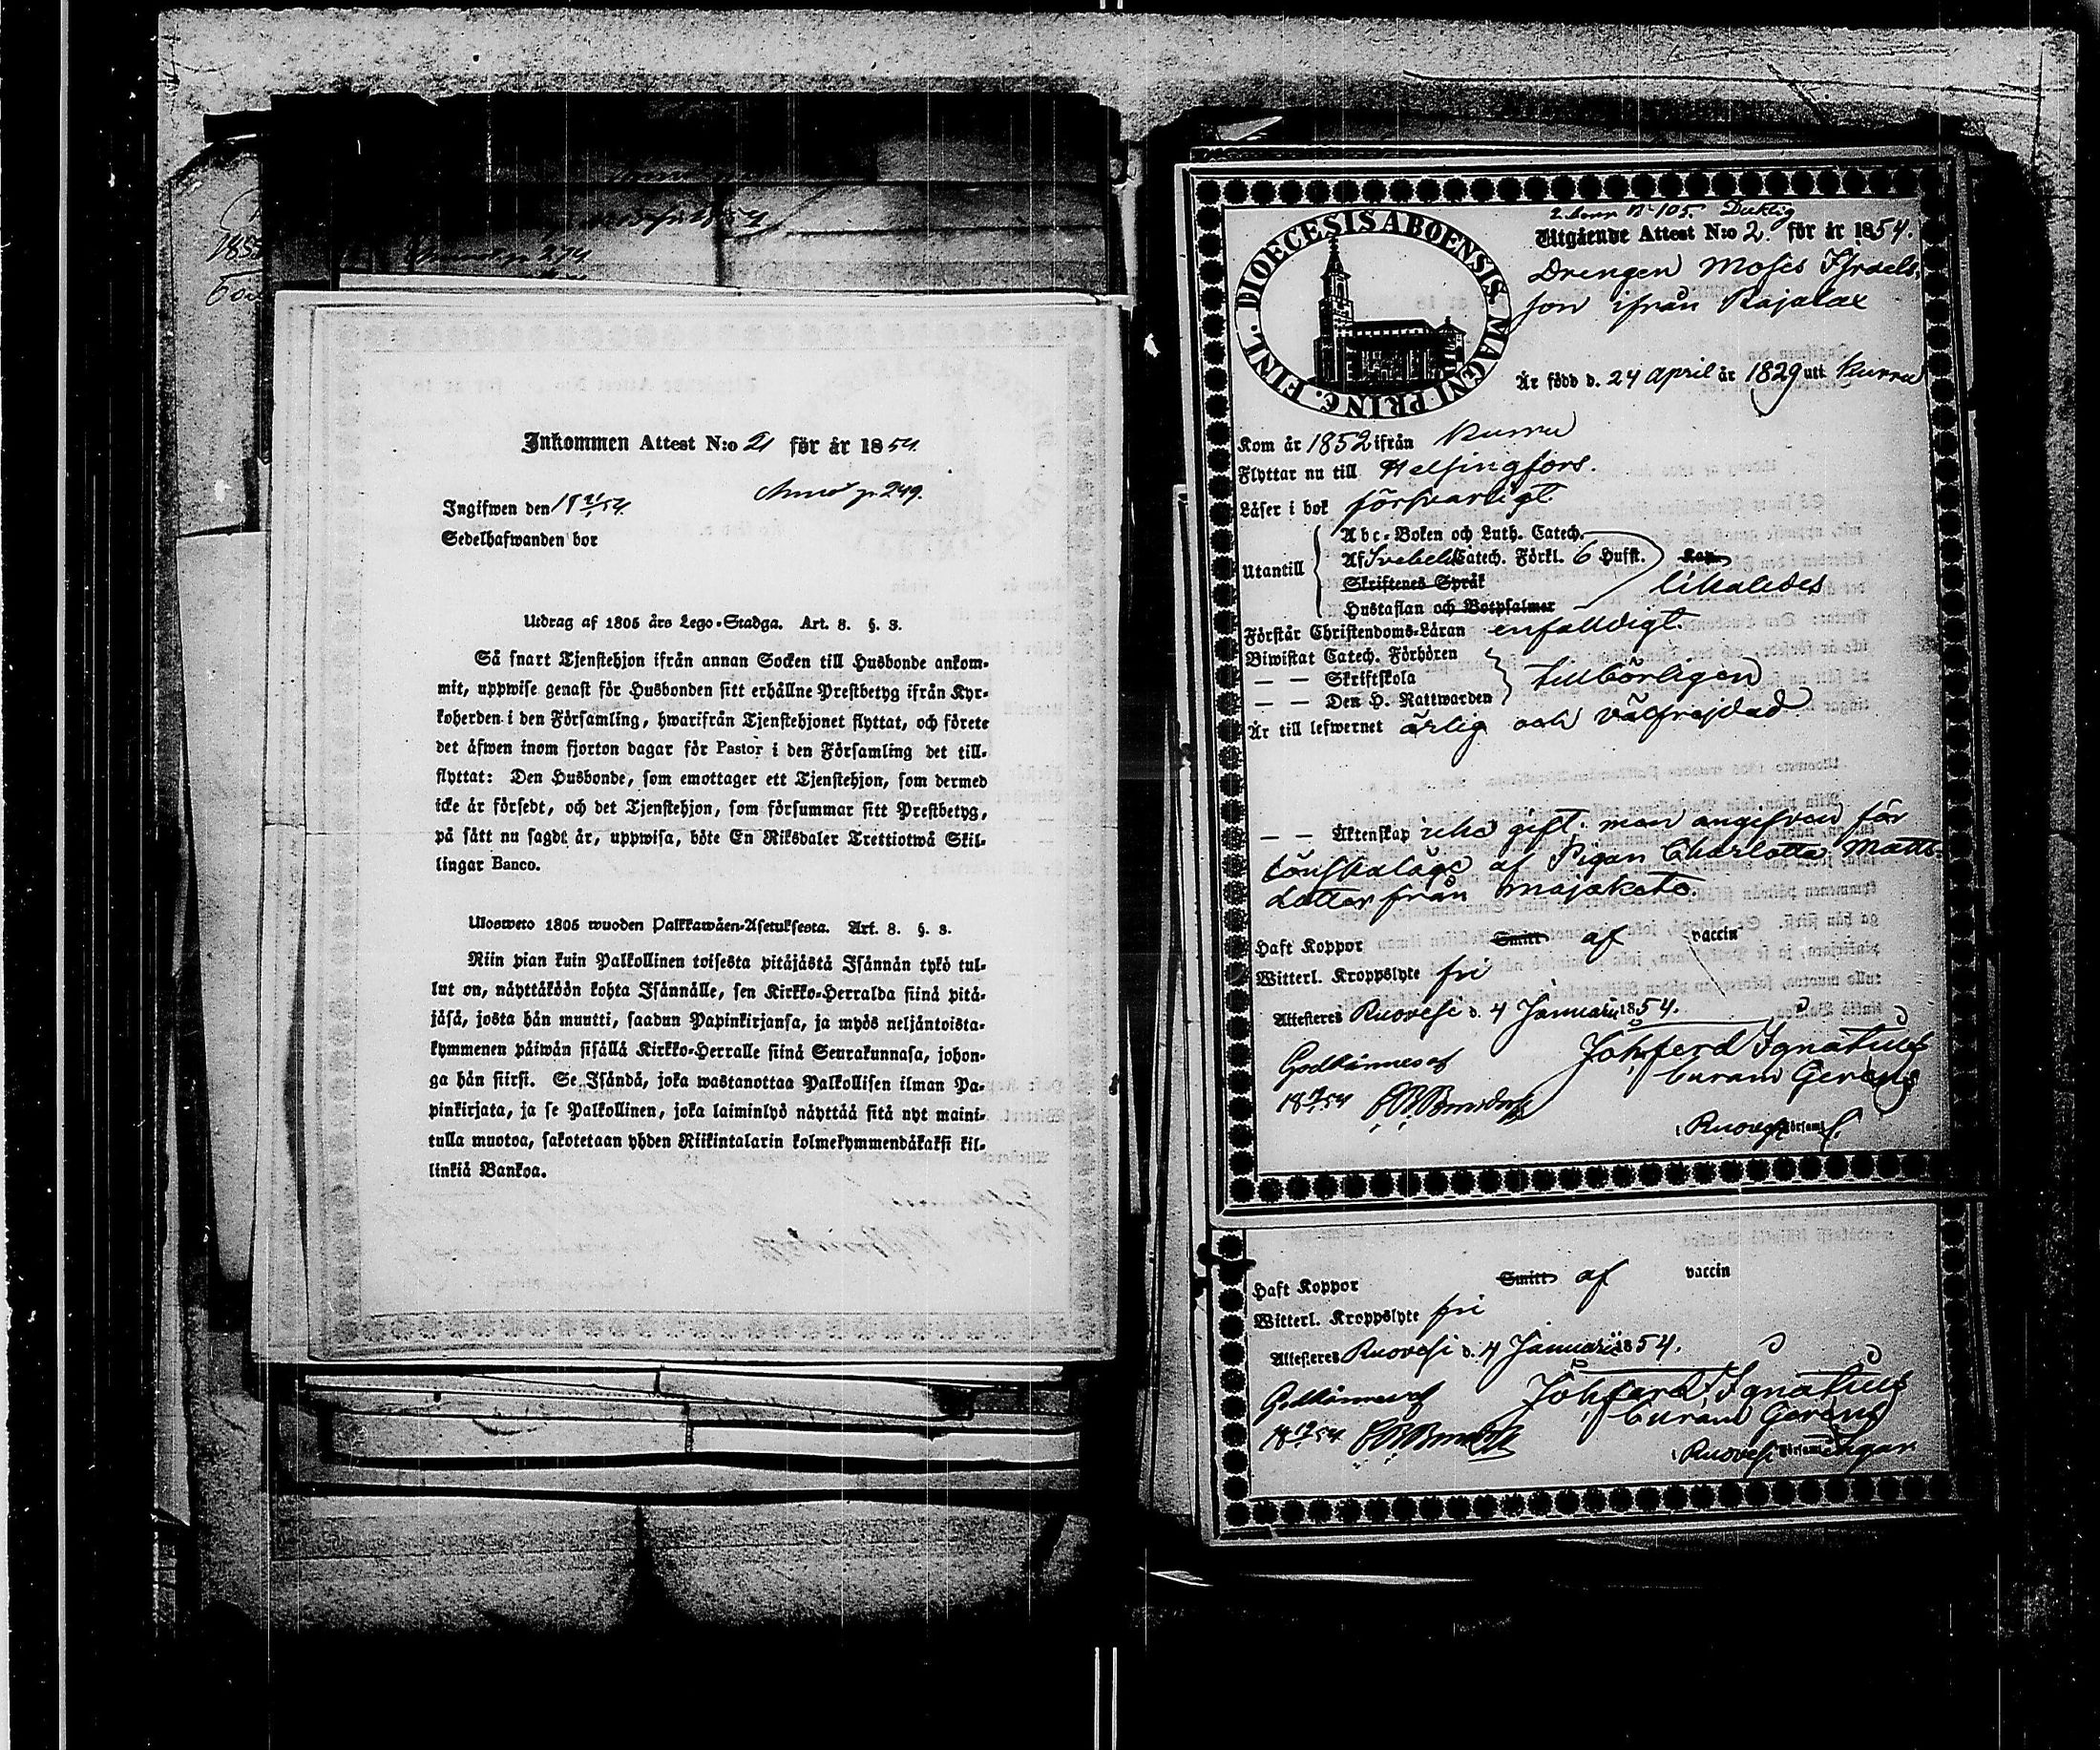 1855
Inkommen Attest N:o 21 för år 1854.
Ingifwen den 18 21/1 54.
p. 249.
Sedelhafwanden bor
Utdrag af 1805 års Lego-Stadga. Art. 8. §. 3.
Så snart Tjenstehjon ifrån annan Socken till Husbonde ankom-
mit, uppwise genast för Husbonden sitt erhållne Prestbetyg ifrån Kyr-
koherden i den Församling, hwarifrån Tjenstehjonet flyttat, och förete
det äfwen inom fjorton dagar för Pastor i den Församling det till-
flyttat: Den Husbonde, som emottager ett Tjenstehjon, som dermed
icke är försedt, och det Tjenstehjon, som försummar sitt Prestbetyg,
på sätt nu sagdt är, uppwisa, böte En Riksdaler Trettiotwå Skil-
lingar Banco.
Ulosweto 1805 wuoden Palkkawäen-Asetuksesta. Art. 8. §. 3.
Niin pian kuin Palkollinen toisesta pitäjästä Isännän tykö tul-
lut on, näyttäköön kohta Isännälle, sen Kirkko-Herralda siinä pitä-
jäsä, josta hän muutti, saadun Papinkirjansa, ja myös neljäntoista-
kymmenen päiwän sisällä Kirkko-Herralle siinä Seurakunnasa, johon-
ga hän siirsi. Se Isändä, joka wastanottaa Palkollisen ilman Pa-
pinkirjata, ja se Palkollinen, joka laiminlyö näyttää sitä nyt maini-
tulla muotoa, sakotetaan yhden Riikintalarin kolmekymmendäkaksi kil-
linkiä Bankoa.
DIOECESIS ABOENSIS. MAGNI PRINC. FINL.
N 105. Duktig
Utgående Attest N:o 2. för år 1854.
Drengen Moses Isräels
son ifrån Kajalax
Är född d. 24 April år 1829 utt Kurru
Kom år 1852 ifrån Kurru
Flyttar nu till Helsingfors.
Läser i bok försvarligt
Utantill
Abc-Boken och Luth. Catech.
Af Svebelii Catech. Förkl. 6 Hufst.
Skriftenes Språk
likaledes
Hustaflan och Botpsalmer
Förstår Christendoms-Läran enfaldigt
Biwistat Catech. Förhören
— — Skriftskola tillbörligen
— — Den H. Nattwarden
Är till lefwernet ärlig och välfrejdad
— — Äktenskap icke gift; men angifven för
lönskaläge af Pigan Charlotta Matts-
dotter från Majakoto
Haft Koppor Smitt af vaccin
Witterl. Kroppslyte fri
Attesteres Ruovesi d. 4 Januarii 1854.
Godkännes af Joh. Ferd. Ignatius
Curam Gerens
i Ruovesi Församl.
Haft Koppor Smitt af vaccin
Witterl. Kroppslyte fri
Attesteres Ruovesi d. 4 Januarii 1854.
Godkännes af Joh. Ferd. Ignatius
Curam Gerens
i Ruovesi Församlingar